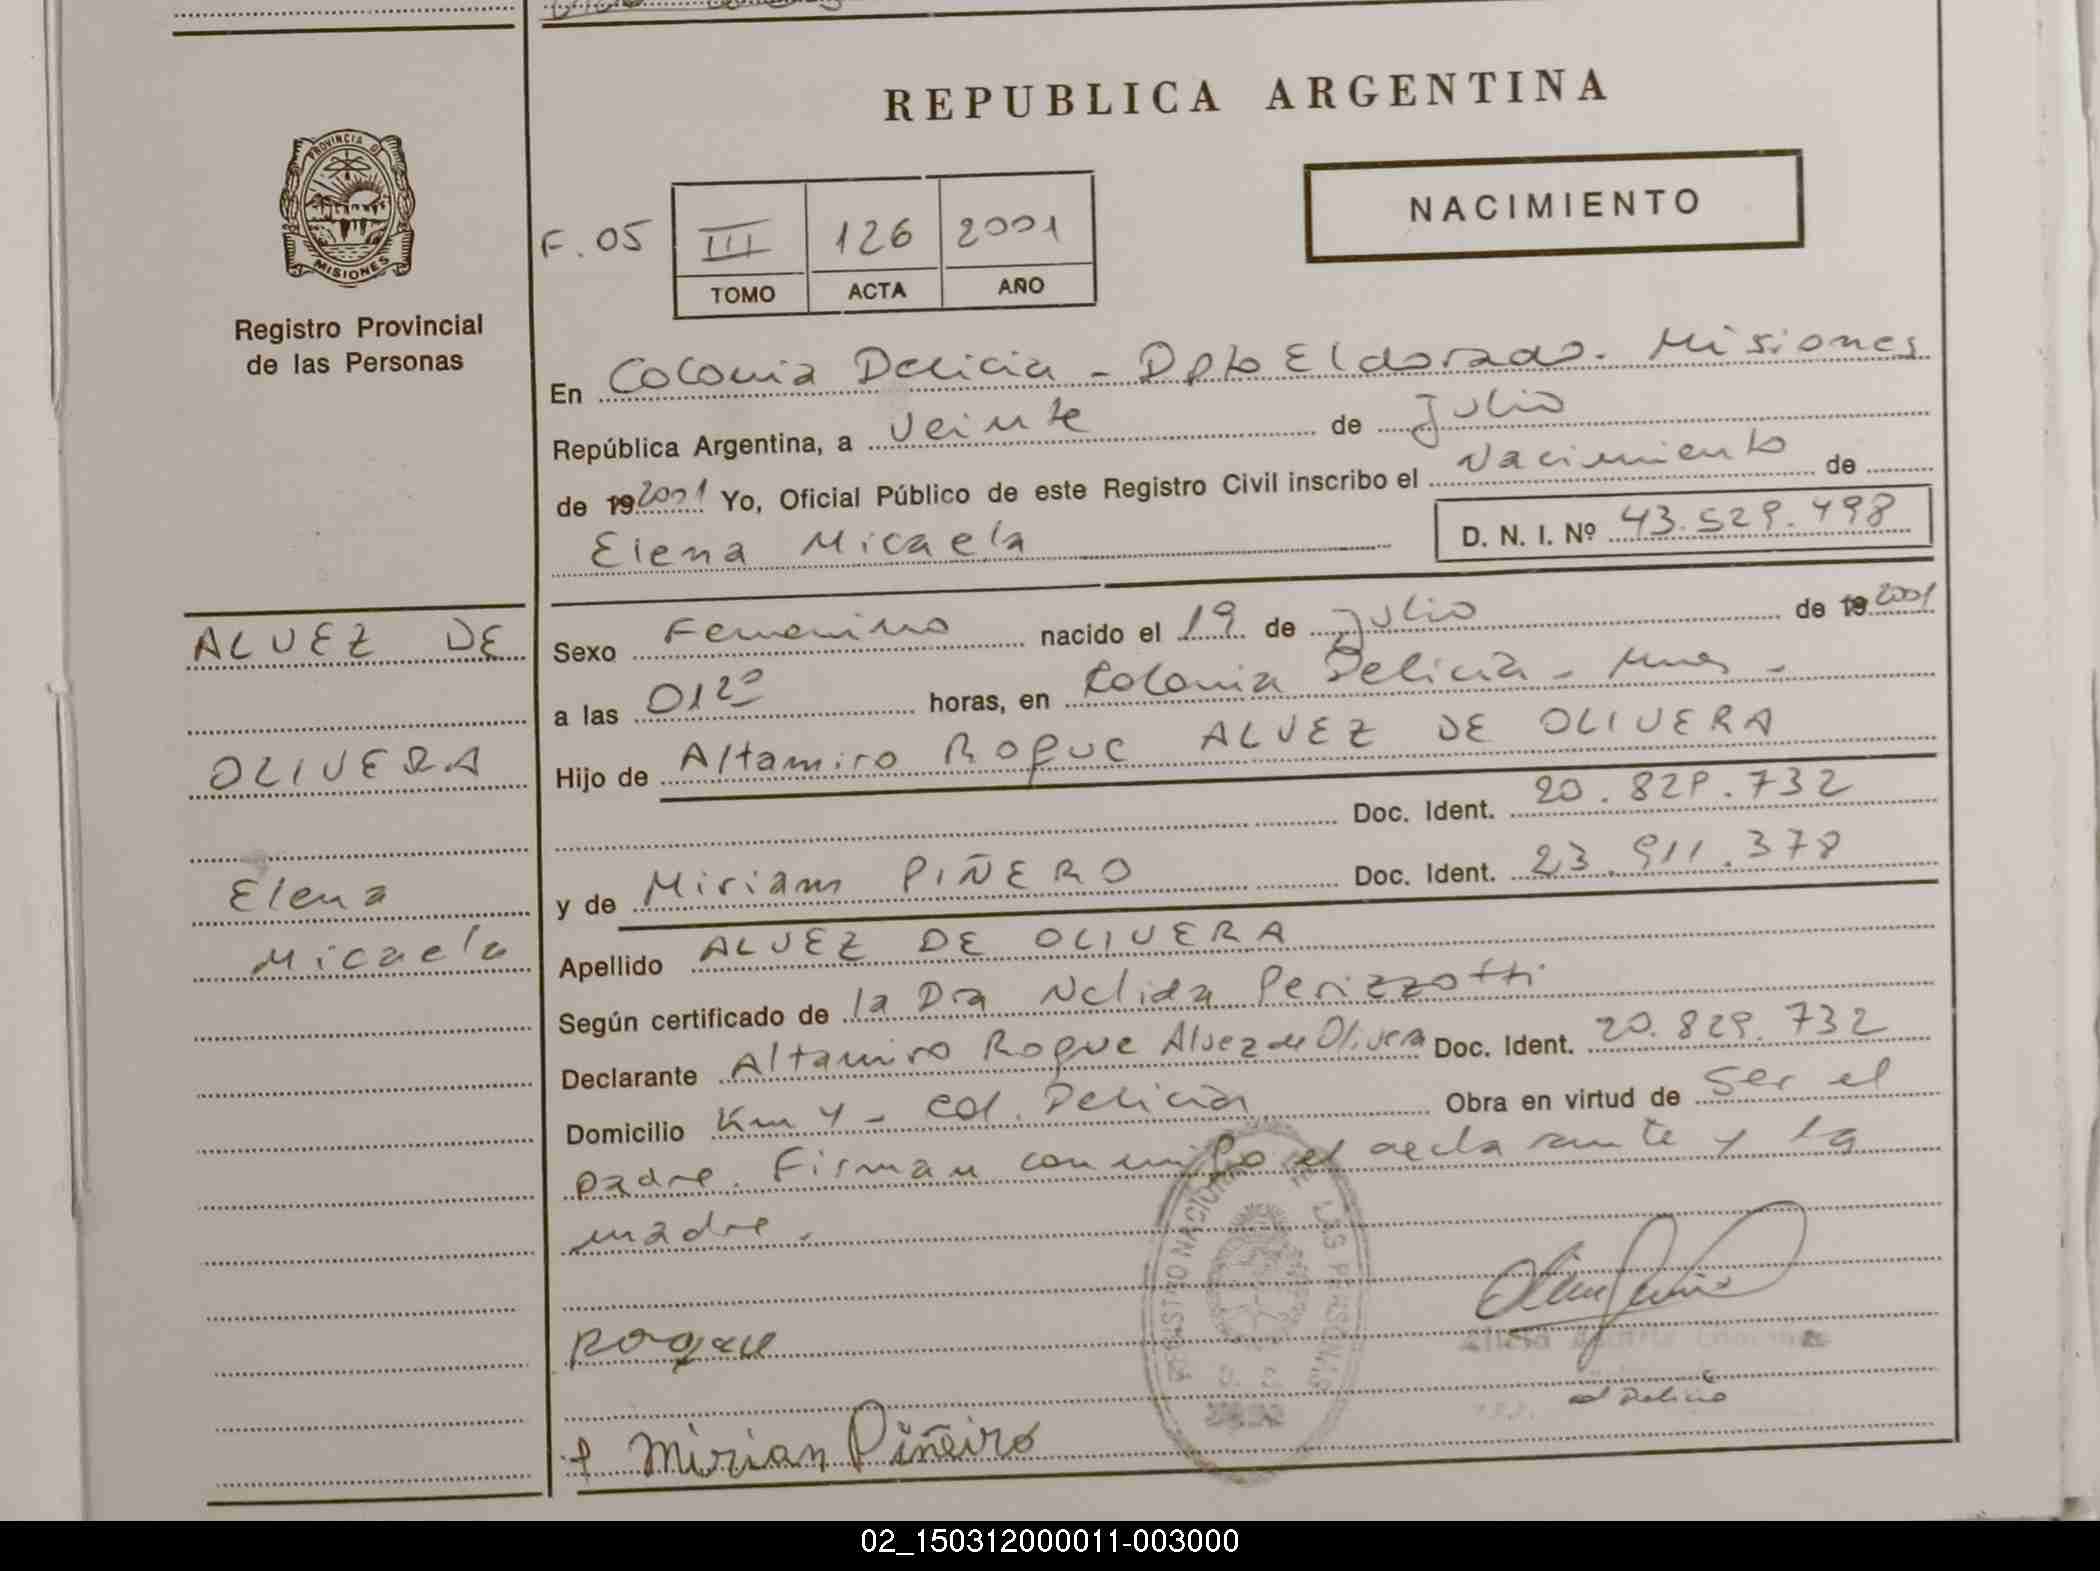 REPUBLICA ARGENTINA
PROVINCIA DE
MISIONES
Registro Provincial
de las Personas
NACIMIENTO
F. 05
III 126 2001
TOMO ACTA AÑO
En Colonia Delicia - Dpto Eldorado. Misiones
República Argentina, a Veinte de Julio
de 192001 Yo, Oficial Público de este Registro Civil inscribo el Nacimiento de
Elena Micaela D. N. I. Nº 43.529.498
ALVEZ DE
OLIVERA
Elena
Micaela
Sexo Femenino nacido el 19 de Julio de 19 2001
a las 01 20 horas, en Colonia Delicia - Mnes -
Hijo de Altamiro Roque ALVEZ DE OLIVERA
Doc. Ident. 20.829.732
y de Miriam PIÑERO Doc. Ident. 23.911.378
Apellido ALVEZ DE OLIVERA
Según certificado de la Dra Nelida Perizzotti
Declarante Altamiro Roque Alvez de Olivera Doc. Ident. 20.829.732
Domicilio Km 4 - Col. Delicia Obra en virtud de ser el
padre. Firman conmigo el declarante y la
madre.
REGISTRO NACIONAL DE LAS PERSONAS
Roque
Alicia
Col Delicia
Mirian Piñeiro
02_150312000011-003000